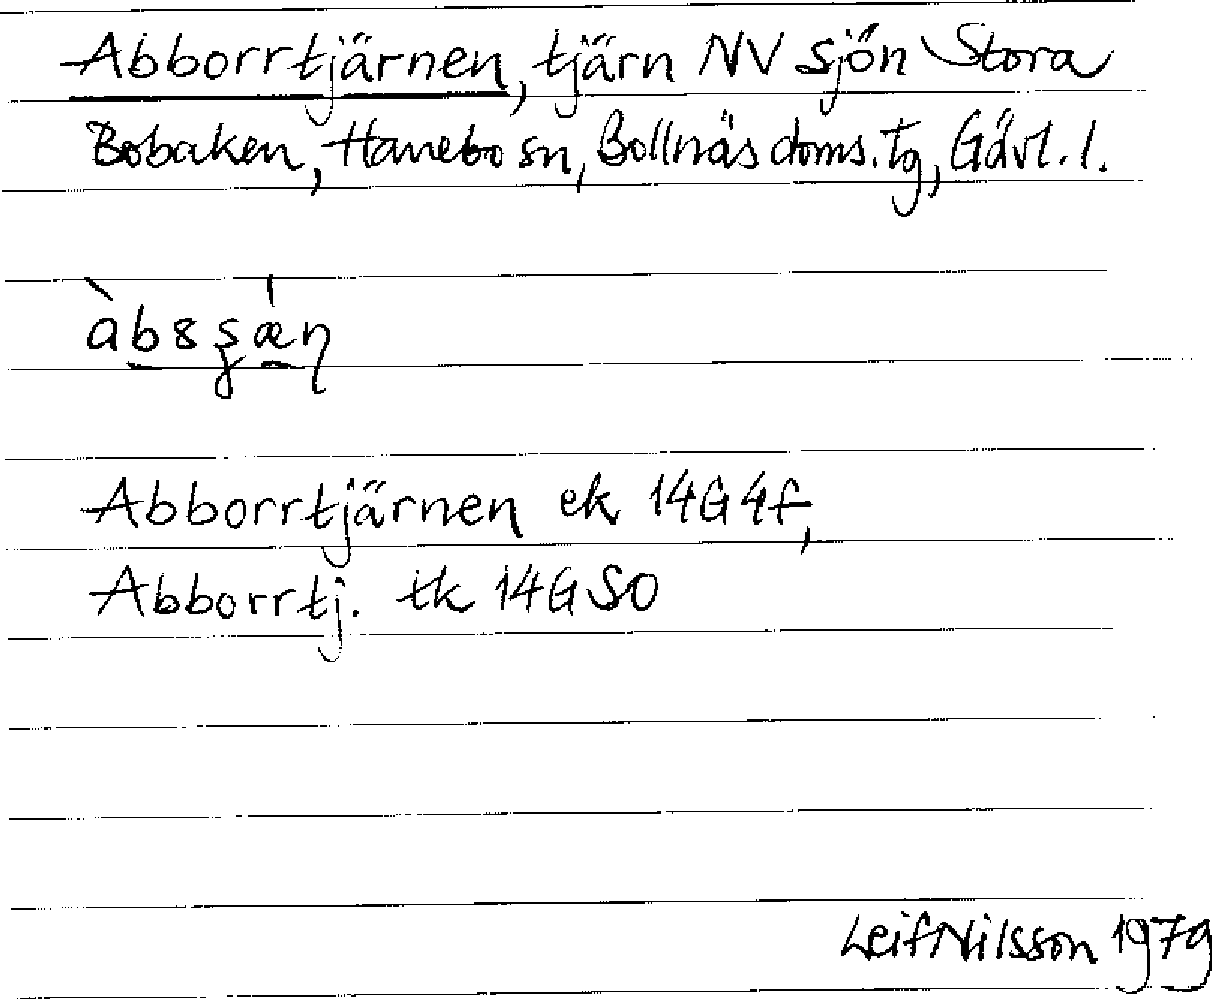 Abborrtjärnen, tjärn NV sjön Stora
Bobaken, Hanebo sn, Bollnäs doms. tg, Gävl. l.
Abborrtjärnen ek 14G 4f,
Abborrtj. tk 14G SO
Leif Nilsson 1979